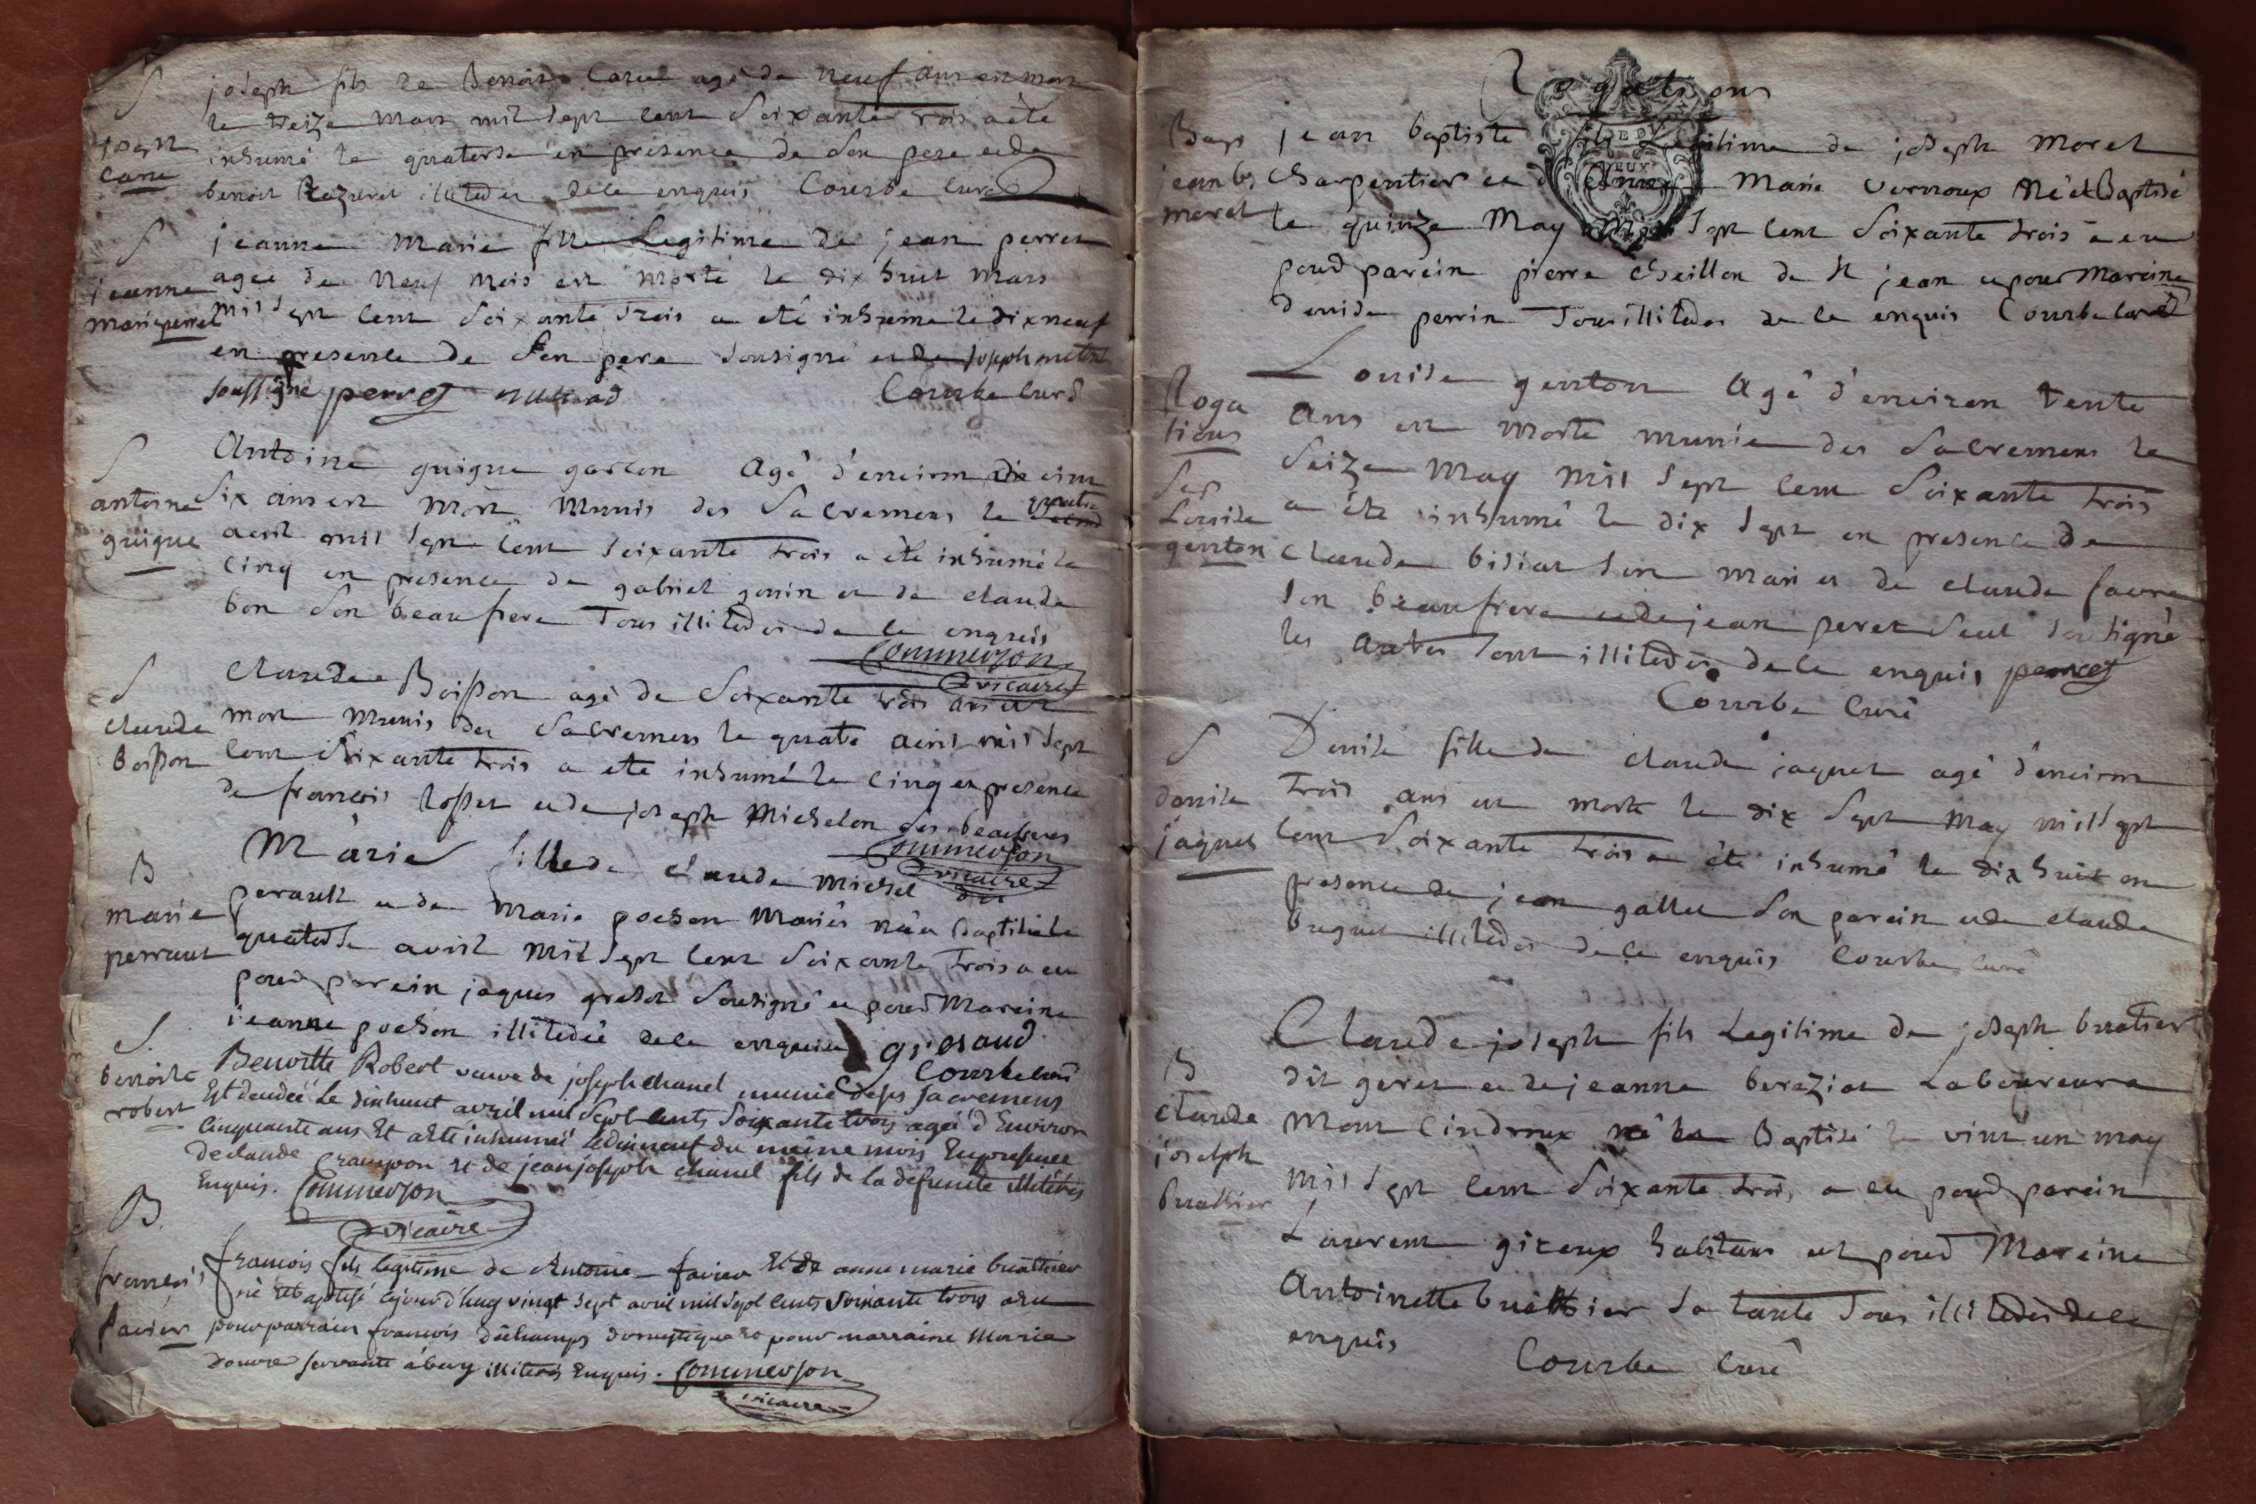 S
joseph
Carre
joseph fils de Benoit Carre agé de neuf ans est mort
le treize mars mil sept cent soixante trois a été
inhumé le quatorse en présence de son pere et de
benoit illiteder de ce enquis Courbe Curé
S
jeanne
marie perret
jeanne Marie fille Legitime de jean perret
agee de neuf mois est morte le dix huit mars
mil sept cent soixante trois a eté inhumé le dix neuf
en presence de son pere sousigné et de joseph
soussigné perret Courbe Curé
S
antoine
guigue
Antoine guigue garcon Agé d'environ cinc
six ans est mort Munis des Sacremens le quatre
avril mil sept cent soixante trois a été inhumé le
cinq en presence de gabriel gonin et de claude
bon son beaufrere Tous illiteder de ce enquis
Commerson
vicaire
S
claude
Boisson
Claude Boisson agé de Soixante trois ans est
mort Munis des Sacremens le quatre avril mil sept
cent soixante trois a eté inhumé le cinq en presence
de francois rosset et de joseph Michelon ses beaufreres
Commerson
vicaire
B
marie
perraut
Marie fille de claude Michel dit
perault et de Marie pochon Mariés née et Baptisée le
quatorse avril mil sept cent soixante trois a eu
pour parein jaques sousigné et pour Mareine
jeanne pochon illitedée de ce enquise gresaud
Courbe curé
S.
benoite
robert
Benoitte Robert veuve de joseph chanel munie de ses sacremens
Est decedeé Le dixhuit avril mil sept cents soixante trois agée d'Environ
cinquante ans Et a été inhumeé Ledixneuf du même mois En presence
De claude Crampon et de jean joseph chanel fils de la défunte illitérés
Enquis. Commerson
vicaire
B.
francois
favier
francois fils légitime de Antoine favier Et de anne marie buathier
né Et baptisé cejourd'huy vingt sept avril mil sept cents soixante trois a eu
pour parrain francois déchamps domestique et pour marraine Marie
servante illiterés Enquis. Commerson
vicaire
Rogations
Bap
jean b
moret
jean baptiste fils Legitime de joseph Moret
Charpentier et d'Anne Marie vernoux né et Baptisé
le quinze May mil sept cent soixante trois a eu
pour parein pierre cheillon de St jean et pour Mareine
Denise perrin Tous illiteder de ce enquis Courbe curé
Roga
tions
Sep
Louise
genton
Louise genton Agé d'environ trente
Ans est morte munie des Sacremens le
Seize May mil sept cent soixante trois
a été inhumé le dix sept en presence de
claude bisiat son mari et de claude favre
son beaufrere et de jean peret seul sousigné
les autres sont illiteder de ce enquis perret
Courbe Curé
S
denise
jaquet
Denise fille de claude jaquet agé d'environ
Trois ans est morte le dix sept May mil sept
cent soixante trois a été inhumé le dix huit en
presence de jean gallet son parein et de claude
buguet illiteder de ce enquis Courbe curé
B
claude
joseph
buathier
Claude joseph fils Legitime de joseph buatier
dit geret et de jeanne bereziat Laboureurs a
Mont Cindroux né et Baptisé le vint un may
mil sept cent soixante trois a eu pour parein
Laurent gireux habitans et pour Mareine
Antoinette buathier sa tante Tous illiteder de ce
enquis Courbe Curé